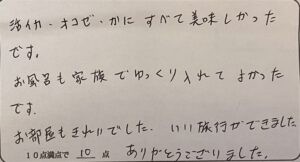 活イカ・オコゼ・かに すべて美味しかった
です。
お風呂も家族でゆっくり入れてよかった
です.
お部屋もきれいでした. いい旅行ができました
10点満点で 10 点 ありがとうございました.